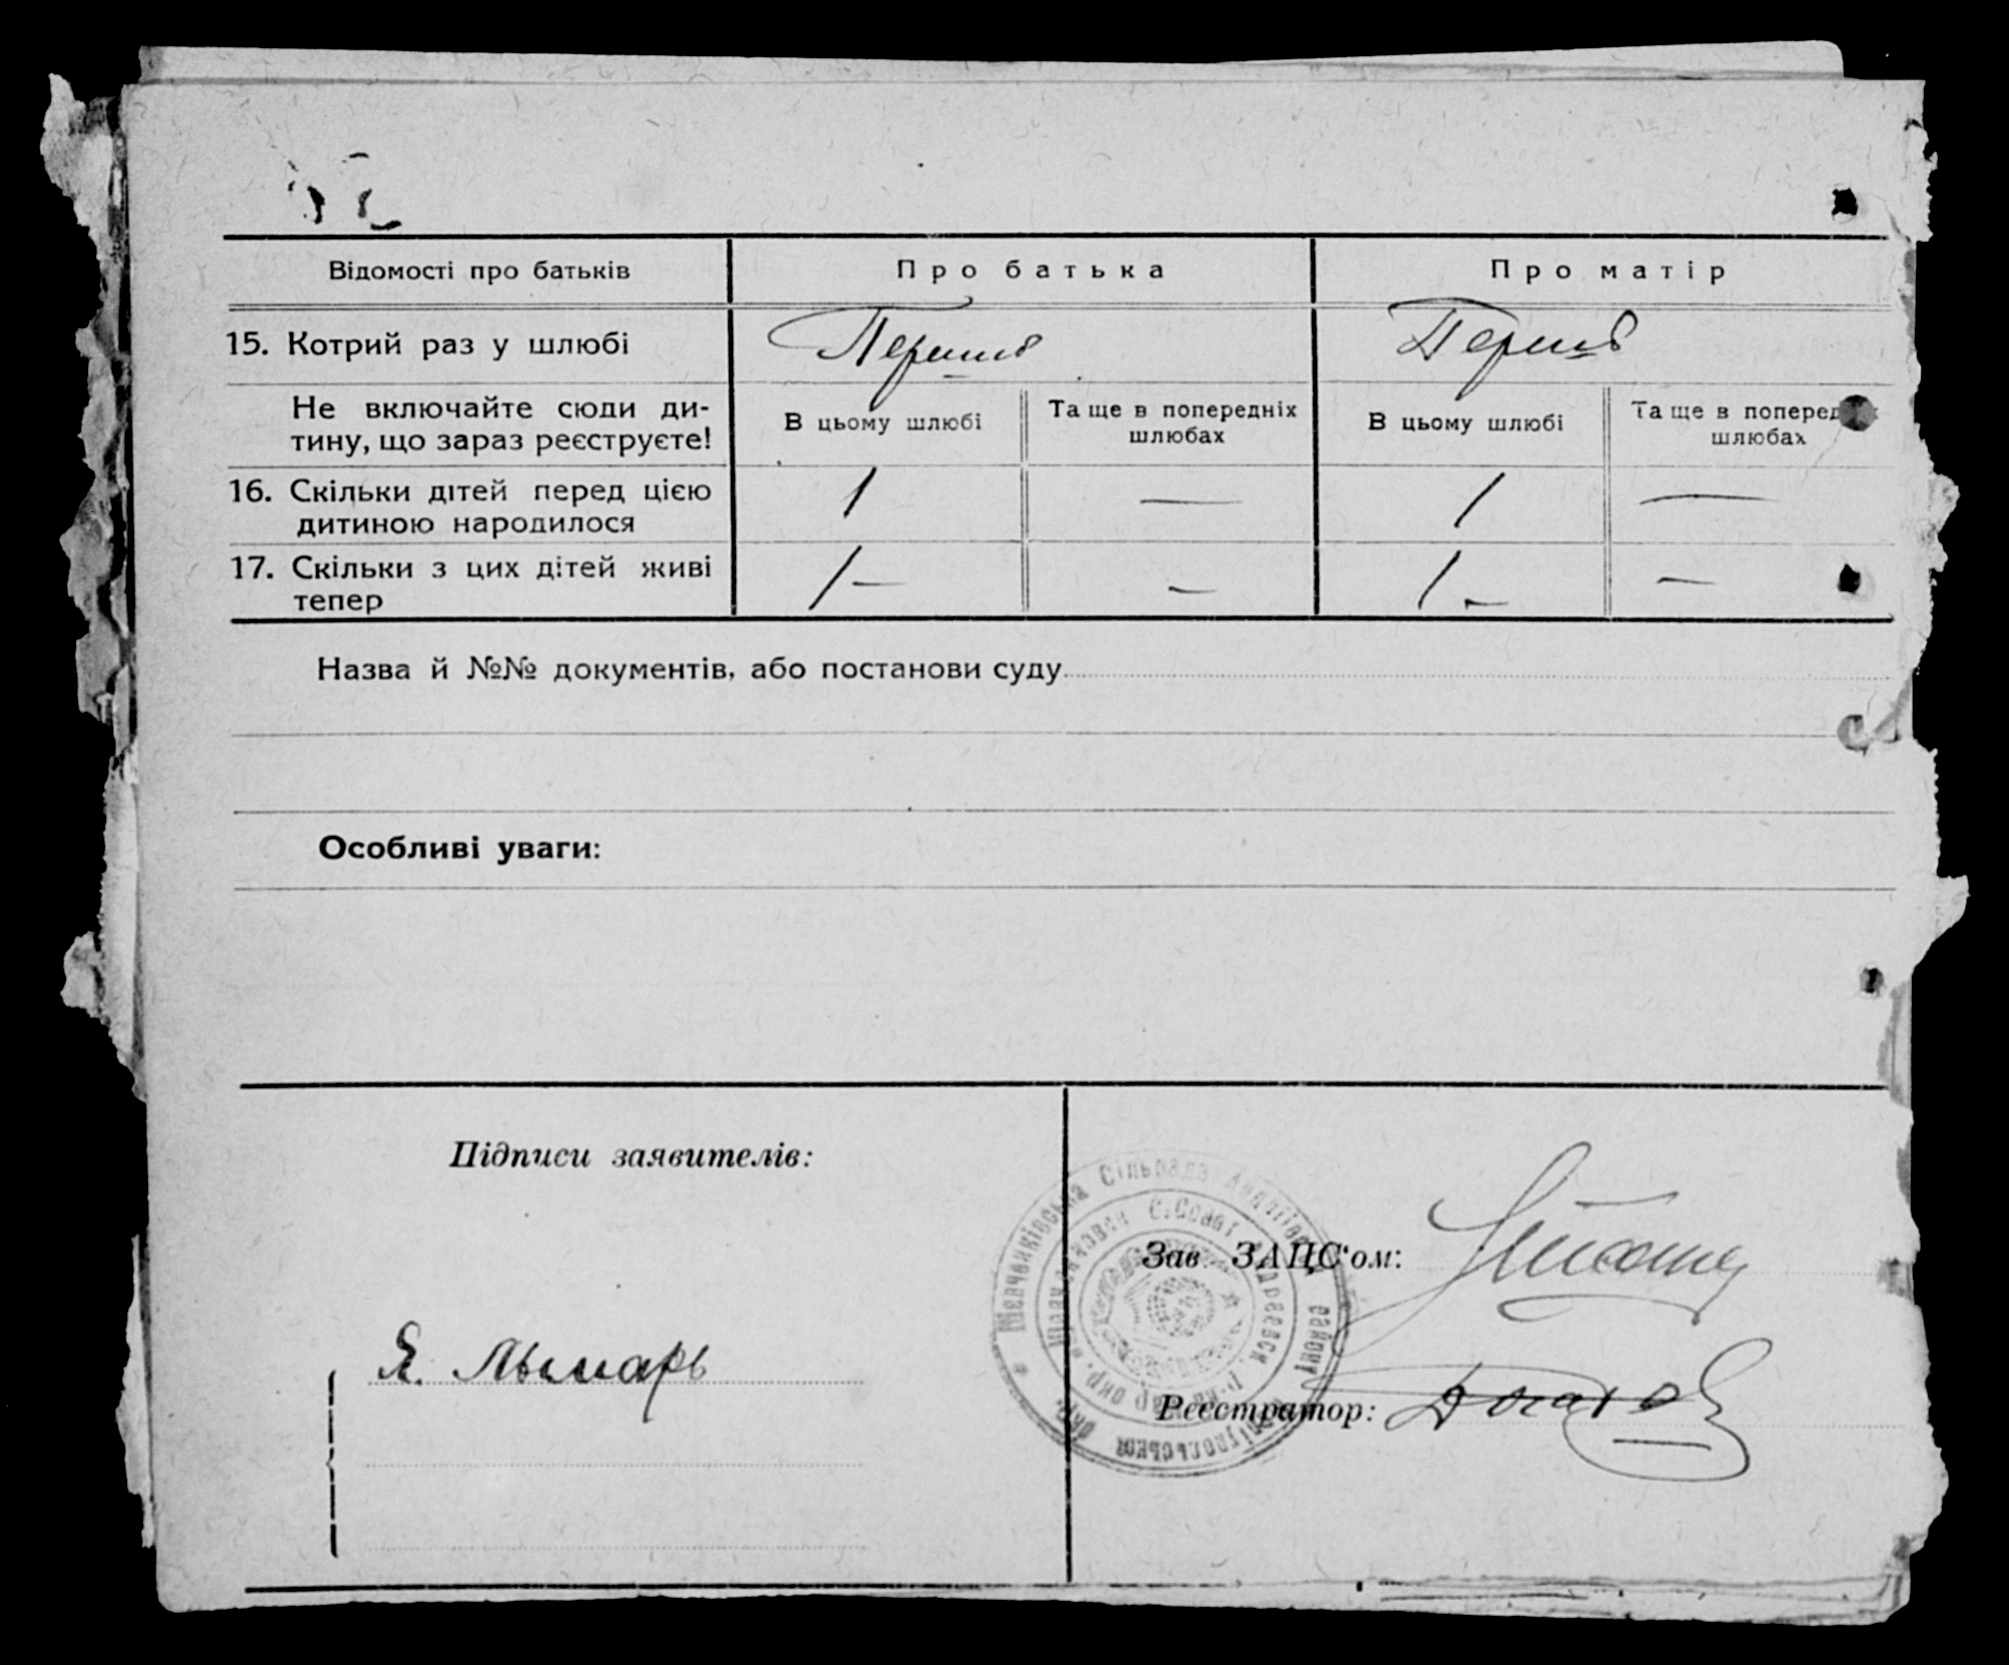 Відомості про батьків
Про батька
Про матір
15. Котрий раз у шлюбі
Перший
Перший
Не включайте сюди ди-
тину, що зараз реєструєте!
В цьому шлюбі
Та ще в попередніх
шлюбах
В цьому шлюбі
Та ще в попередніх
шлюбах
16. Скільки дітей перед цією
дитиною народилося
1 — 1 —
17. Скільки з цих дітей живі
тепер
1– – 1– –
Назва й №№ документів, або постанови суду
Особливі уваги:
Підписи заявителів:
Зав. ЗАЦС'ом:
Я. Лымарь
Реєстратор:
Сільрада
району
С.Совет